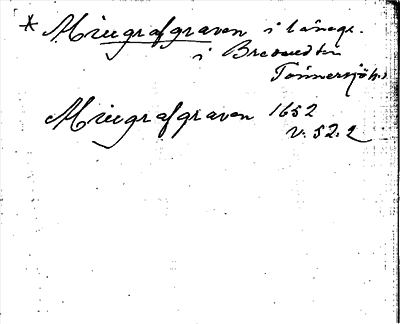 * Miegrafgraven i länge.
i Bredvedtn
Tönnersjöh.
Miegrafgraven 1652
v. 52.2